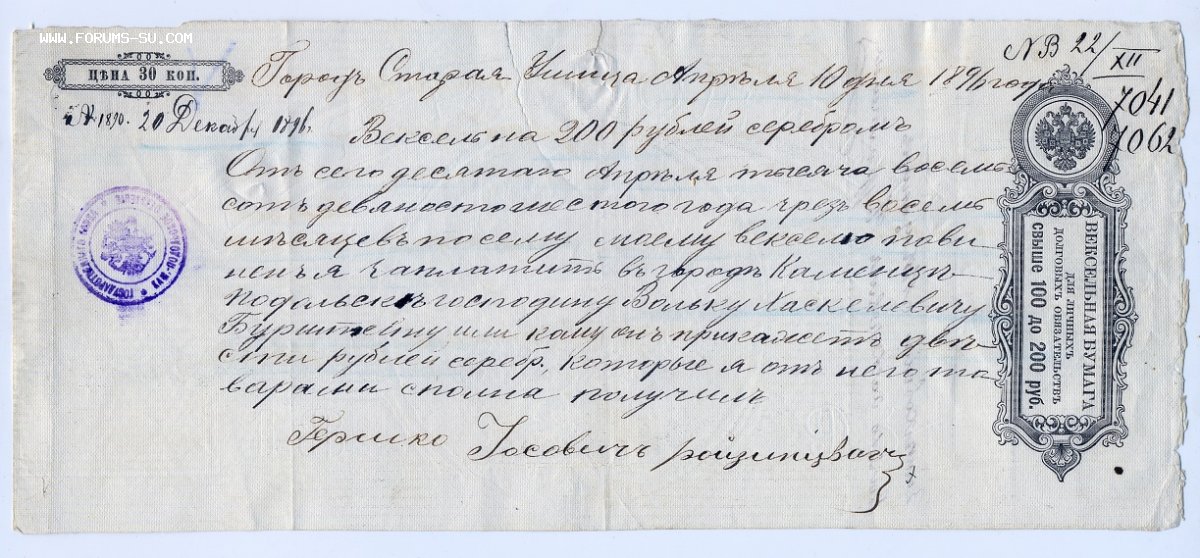 WWW.FORUMS-SU.COM
ЦѢНА 30 КОП.
N В 22/XII
Городъ Старая Ушица Апрѣля 10 дня 1896 года
7041
7062
N 1890. 20 Декабр 1896.
Вексель на 200 рублей серебромъ
Отъ сего десятаго Апрѣля тысяча восемь
сотъ девяностошестого года чрезъ восемь
мѣсяцевъ по сему моему векселю пови
ненъ я заплатить въ городѣ Каменецъ-
Подольскъ господину Вольку Хаскелевичу
Бурштейну или кому онъ прикажетъ двѣ
сти рублей серебр., которые я отъ него то
варами сполна получилъ
Гершко Іосовичъ
ВЕКСЕЛЬНАЯ БУМАГА
ДЛЯ ЛИЧНЫХЪ
ДОЛГОВЫХЪ ОБЯЗАТЕЛЬСТВЪ
СВЫШЕ 100 ДО 200 РУБ.